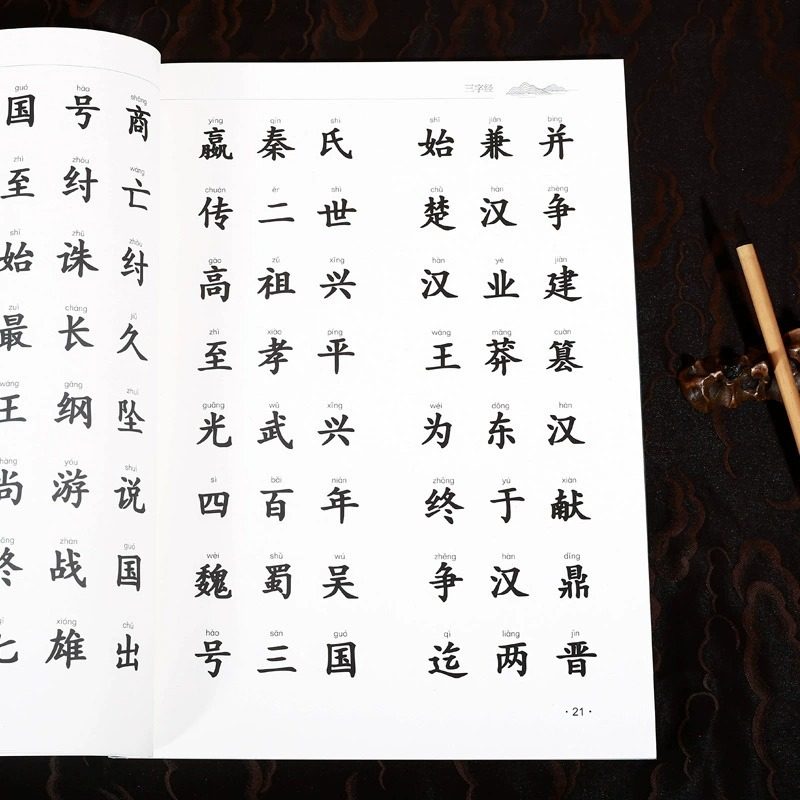 guó hào shāng
国号商
zhì zhòu wáng
至纣亡
shǐ zhū zhòu
始诛纣
zuì cháng jiǔ
最长久
wáng gāng zhuì
王纲坠
yóu shuì
尚游说
zhàn guó
终战国
xióng chū
七雄出
三字经
yíng qín shì shǐ jiān bìng
嬴秦氏 始兼并
chuán èr shì chǔ hàn zhēng
传二世 楚汉争
gāo zǔ xīng hàn yè jiàn
高祖兴 汉业建
zhì xiào píng wáng mǎng cuàn
至孝平 王莽篡
guāng wǔ xīng wéi dōng hàn
光武兴 为东汉
sì bǎi nián zhōng yú xiàn
四百年 终于献
wèi shǔ wú zhēng hàn dǐng
魏蜀吴 争汉鼎
hào sān guó qì liǎng jìn
号三国 迄两晋
·21·